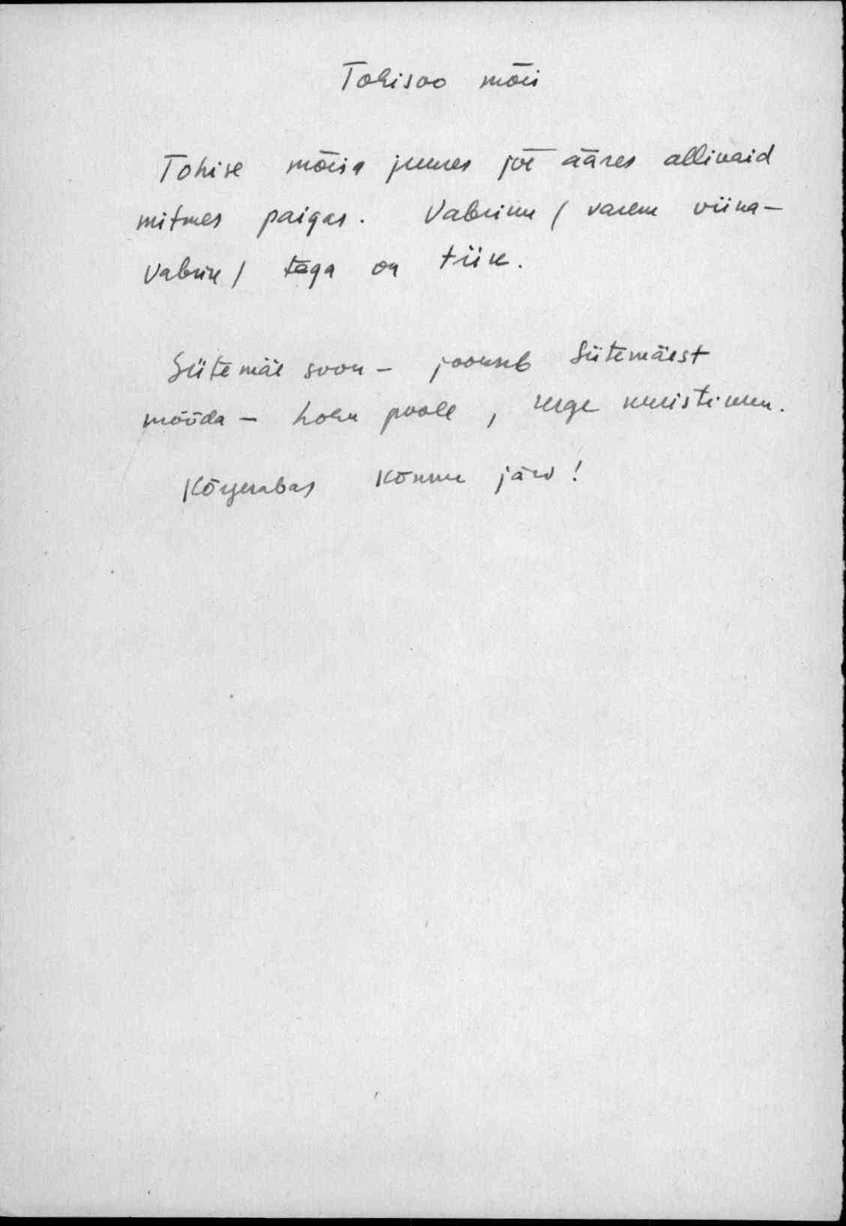 Tohisoo mõis
Tohise mõisa juures jõe ääres allikaid
mitmes paigas. Vabriku / varem viina-
vabrik / taga on tiik.
Sütemäe soon - jookseb Sütemäest
mööda - Kohu poole,
Kõrgerabas Kõnnu järv!